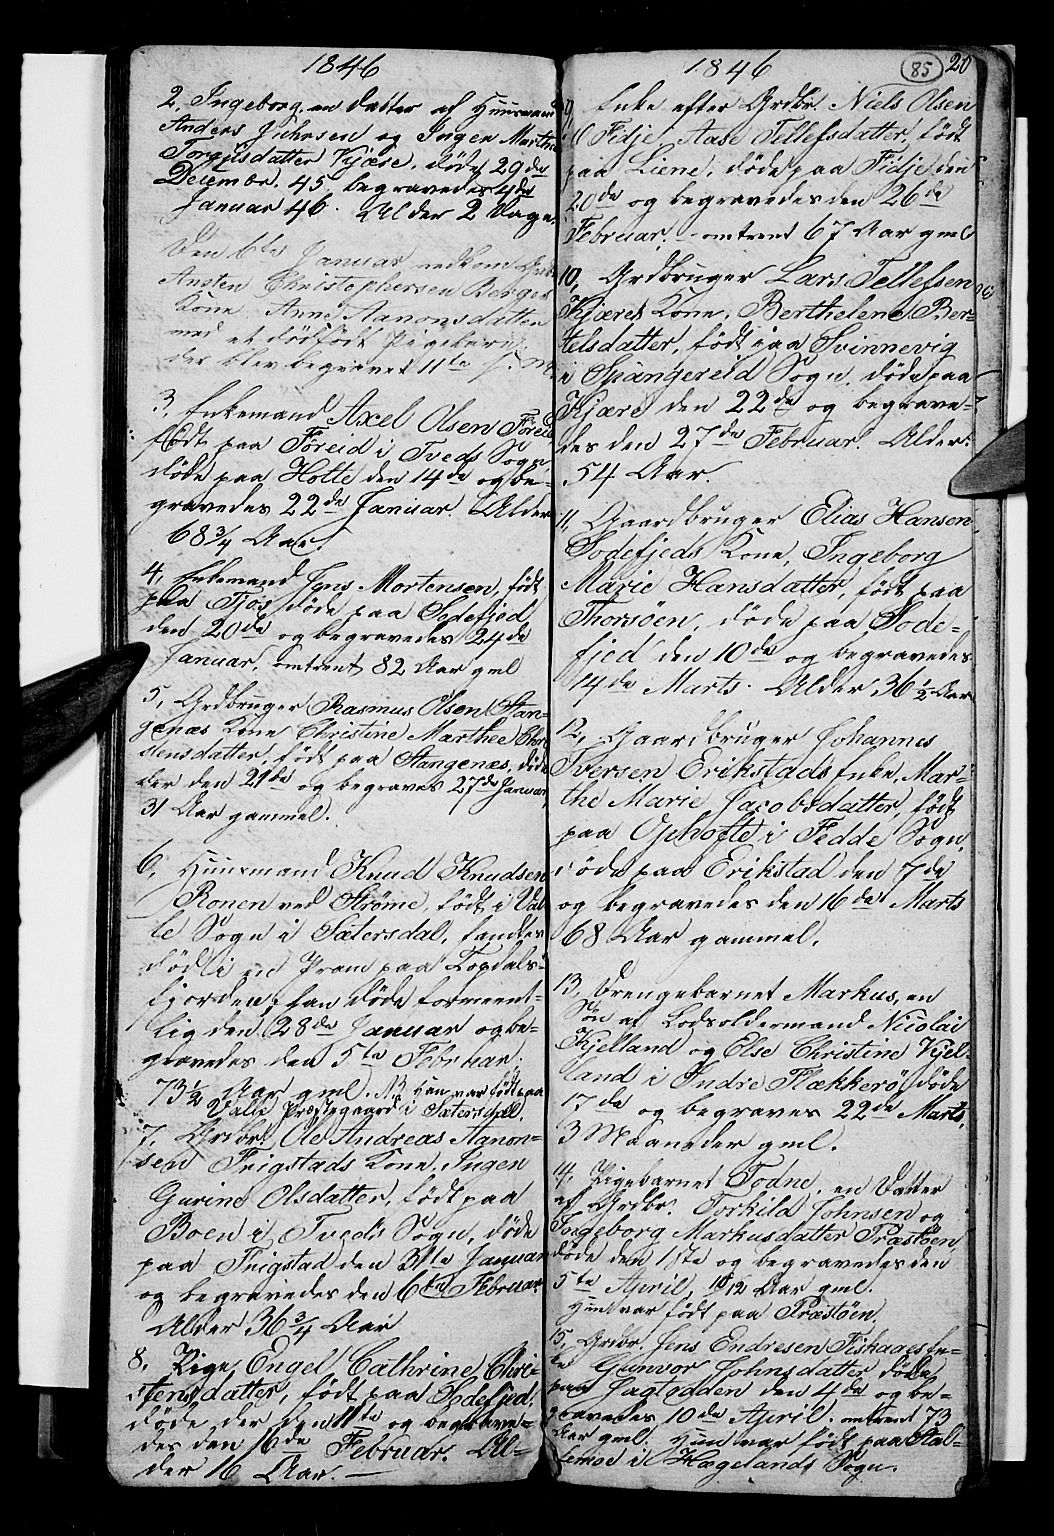 1846
2, Ingeborg, en Datter af Huusmand
Anders Juhlsen og Ingen Marthe
Torgilsdatter Kjære, døde 29de
Decembr. 45, begravedes 4de
Januar 46. Alder 2 Dage.
Den 6te Januar nedkom Grdbr
Ansten Christophersen Berges
Kone Anne Aanonsdatter
med et dødfødt Pigebarn,
der blev begravet 11te s. M.
3, Enkemand Axel Olsen Føreid,
født paa Føreid i Tveds Sogn,
døde paa Holte den 14de og be-
gravedes 22de Januar. Alder
68 3/4 Aar.
4, Enkemand Jens Mortensen, født
paa Fjos, døde paa Sodefjed
den 20de og begravedes 24de
Januar, omtrent 82 Aar gml
5, Grdbruger Rasmus Olsen Stan-
genæs Kone Christine Marthee Chri-
stensdatter, født paa Stangenæs, døde
der den 21de og begraves 27de Januar,
31 Aar gammel.
6, Huusmand Knud Knudsen
Ronen ved Strøme, født i Val-
le Sogn i Sætersdal, fandtes
død i en Pram paa Topdals-
fjorden; han døde formeent-
lig den 28de Januar og be-
gravedes den 5te Februar.
73 1/2 Aar gml. NB Han var født paa
Valle Præstegaard i Sætersdal.
7, Grdbr. Ole Andreas Aanon-
sen Frigstads Kone, Ingen
Gurine Olsdatter, født paa
Boen i Tveds Sogn, døde
paa Frigstad den 31te Januar
og begravedes den 6te Februar.
Alder 36 3/4 Aar
8, Pige Engel Cathrine Chri-
stensdatter, født paa Sodefjed,
døde der den 11te og begrave-
des den 16de Februar. Al-
der 16 Aar. —
1846
85 20
9, Enke efter Grdbr. Niels Olsen
Fidje, Aase Tellefsdatter, født
paa Liene, døde paa Fidje den
20de og begravedes den 26de
Februar. – omtrent 67 Aar gml
10, Grdbruger Lars Tellefsen
Kjæres Kone, Berthelene Ber-
telsdatter, født paa Svinnevig
i Spangereid Sogn, døde paa
Kjære den 22de og begrave-
des den 27de Februar. Alder:
54 Aar.
11, Gaardbruger Elias Hansen
Sodefjeds Kone, Ingeborg
Marie Hansdatter, født paa
Thorsøen, døde paa Sode-
fjed den 10de og begravedes
14de Marts. Alder 36 1/2 Aar
12, Gaardbruger Johannes
Iversen Erikstads Enke, Mar-
the Marie Jacobsdatter, født
paa Ophofte i Fedde Sogn,
døde paa Erikstad den 7de
og begravedes den 16de Marts
68 Aar gammel.
13, Drengebarnet Markus, en
Søn af Lodsoldermand Nicolai
Kjelland og Else Christine Kjel-
land i Indre Flekkerø, døde
17de og begraves 22de Marts,
3 Maaneder gml.
14, Pigebarnet Todne, en Datter
af Grdbr. Torkild Johnsen og
Ingeborg Markusdatter Præstøen,
døde den 1ste og begravedes den
5te April, 10/12 Aar gml.
Hun var født paa Præstøen.
15, Grdbr. Jens Endresen Fiskaaes En-
ke Gunvor Johnsdatter døde
paa Jagtodden den 4de og be-
gravedes 10de April. omtrent 73
Aar gml. Hun var født paa Stal-
lemoe i Hægelands Sogn.